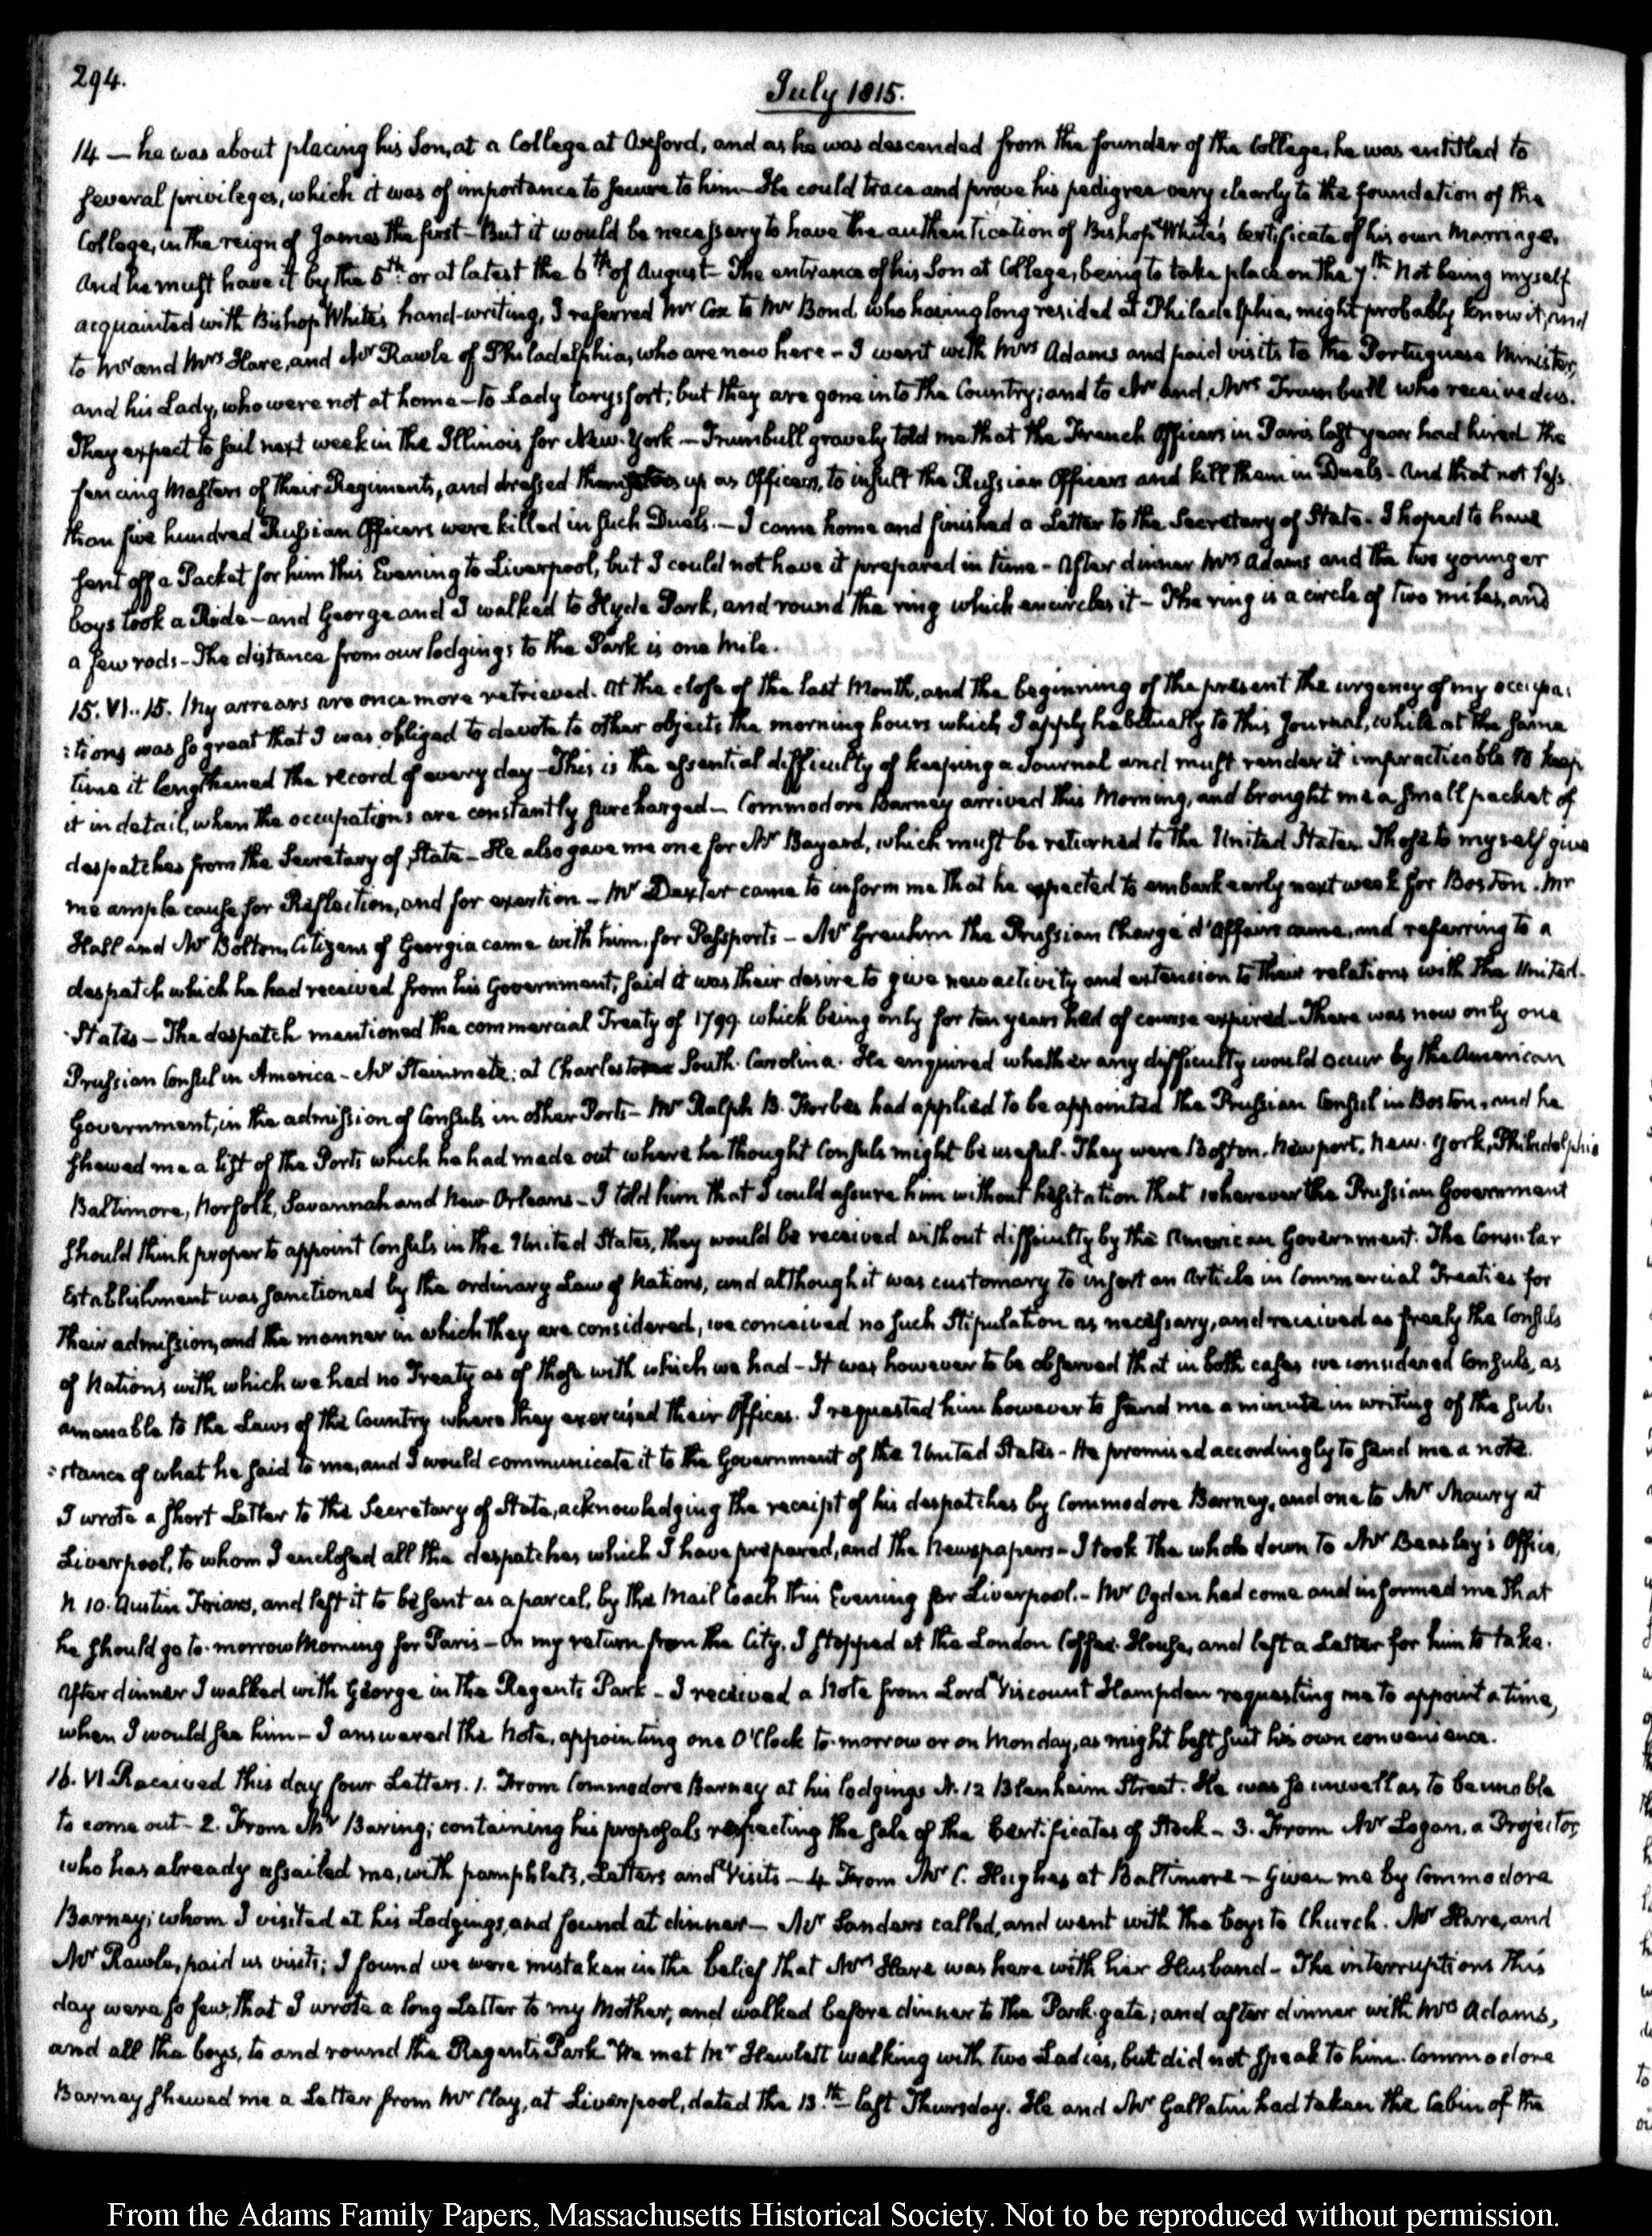 294.
July 1815.
14 — he was about placing his Son, at a College at Oxford, and as he was descended from the founder of the College, he was entitled to
several privileges, which it was of importance to secure to him — He could trace and prove his pedigree very clearly to the foundation of the
College, in the reign of James the first — But it would be necessary to have the authentication of Bishop White's Certificate of his own Marriage,
and he must have it by the 5th or at latest the 6th of August — The entrance of his Son at College, being to take place on the 7th. Not being myself
acquainted with Bishop White's hand-writing, I referred Mr Cox to Mr Bond, who having long resided at Philadelphia, might probably know it, and
to Mr and Mrs Hare, and Mr Rawle of Philadelphia, who are now here — I went with Mrs Adams and paid visits to the Portuguese Minister,
and his Lady, who were not at home — to Lady Carysfort; but they are gone into the Country; and to Mr and Mrs Trumbull who received us.
They expect to sail next week in the Illinois for New-York — Trumbull gravely told me that the French Officers in Paris last year had hired the
fencing Masters of their Regiments, and dressed them up as Officers, to insult the Russian Officers and kill them in Duels — And that not less
than five hundred Russian Officers were killed in such Duels. — I came home and finished a Letter to the Secretary of State. I hoped to have
sent off a Packet for him this Evening to Liverpool, but I could not have it prepared in time — After dinner Mrs Adams and the two younger
boys took a Ride — and George and I walked to Hyde Park, and round the ring which encircles it — The ring is a circle of two miles, and
a few rods — The distance from our lodgings to the Park is one Mile.
15. VI..15. My arrears are once more retrieved. At the close of the last Month, and the beginning of the present the urgency of my occupa:
:tions was so great that I was obliged to devote to other objects the morning hours which I apply habitually to this Journal, while at the same
time it lengthened the record of every day — This is the essential difficulty of keeping a Journal and must render it impracticable to keep
it in detail, when the occupations are constantly surcharged — Commodore Barney arrived this Morning, and brought me a small packet of
despatches from the Secretary of State — He also gave me one for Mr Bayard, which must be returned to the United States. Those to myself give
me ample cause for Reflection, and for exertion — Mr Dexter came to inform me that he expected to embark early next week for Boston. Mr
Hall and Mr Bolton, Citizens of Georgia came with him, for Passports — Mr Greuhm the Prussian Charge d'Affaires came, and referring to a
despatch which he had received from his Government, said it was their desire to give new activity and extension to their relations with the United-
States — The despatch mentioned the commercial Treaty of 1799. which being only for ten years had of course expired — There was now only one
Prussian Consul in America — Mr Steinmetz; at Charleston South-Carolina. He enquired whether any difficulty would occur by the American
Government, in the admission of Consuls in other Ports — Mr Ralph B. Forbes had applied to be appointed the Prussian Consul in Boston, and he
shewed me a list of the Ports which he had made out where he thought Consuls might be useful. They were Boston, Newport, New-York, Philadelphia
Baltimore, Norfolk, Savannah and New Orleans — I told him that I could assure him without hesitation that wherever the Prussian Government
should think proper to appoint Consuls in the United States, they would be received without difficulty by the American Government. The Consular
Establishment was sanctioned by the ordinary Law of Nations, and although it was customary to insert an Article in Commercial Treaties for
their admission, and the manner in which they are considered, we conceived no such Stipulation as necessary, and received as freely the Consuls
of Nations with which we had no Treaty as of those with which we had — It was however to be observed that in both cases we considered Consuls, as
amenable to the Laws of the Country where they exercised their Offices. I requested him however to send me a minute in writing of the sub:
:stance of what he said to me, and I would communicate it to the Government of the United States — He promised accordingly to send me a note.
I wrote a short Letter to the Secretary of State, acknowledging the receipt of his despatches by Commodore Barney, and one to Mr Maury at
Liverpool, to whom I enclosed all the despatches which I have prepared, and the Newspapers — I took the whole down to Mr Beasley's Office,
N 10. Austin Friars, and left it to be sent as a parcel, by the Mail Coach this Evening for Liverpool. — Mr Ogden had come and informed me that
he should go to-morrow Morning for Paris — On my return from the City, I stopped at the London Coffee-House, and left a Letter for him to take.
After dinner I walked with George in the Regents Park — I received a Note from Lord Viscount Hampden requesting me to appoint a time,
when I would see him — I answered the Note, appointing one O'Clock to-morrow or on Monday, as might best suit his own convenience.
16. VI Received this day four Letters. 1. From Commodore Barney at his lodgings N. 12 Blenheim Street. He was so unwell as to be unable
to come out — 2. From Mr Baring; containing his proposals respecting the sale of the Certificates of Stock — 3. From Mr Logan, a Projector,
who has already assailed me, with pamphlets, Letters and Visits — 4 From Mr C. Hughes at Baltimore — Given me by Commodore
Barney; whom I visited at his Lodgings, and found at dinner — Mr Sanders called, and went with the boys to Church. Mr Hare, and
Mr Rawle, paid us visits; I found we were mistaken in the belief that Mrs Hare was here with her Husband — The interruptions this
day were so few, that I wrote a long Letter to my Mother, and walked before dinner to the Park-gate; and after dinner with Mrs Adams,
and all the boys, to and round the Regents Park We met Mr Hewlett walking with two Ladies, but did not speak to him. Commodore
Barney shewed me a Letter from Mr Clay, at Liverpool, dated the 13.th last Thursday. He and Mr Gallatin had taken the Cabin of the
From the Adams Family Papers, Massachusetts Historical Society. Not to be reproduced without permission.